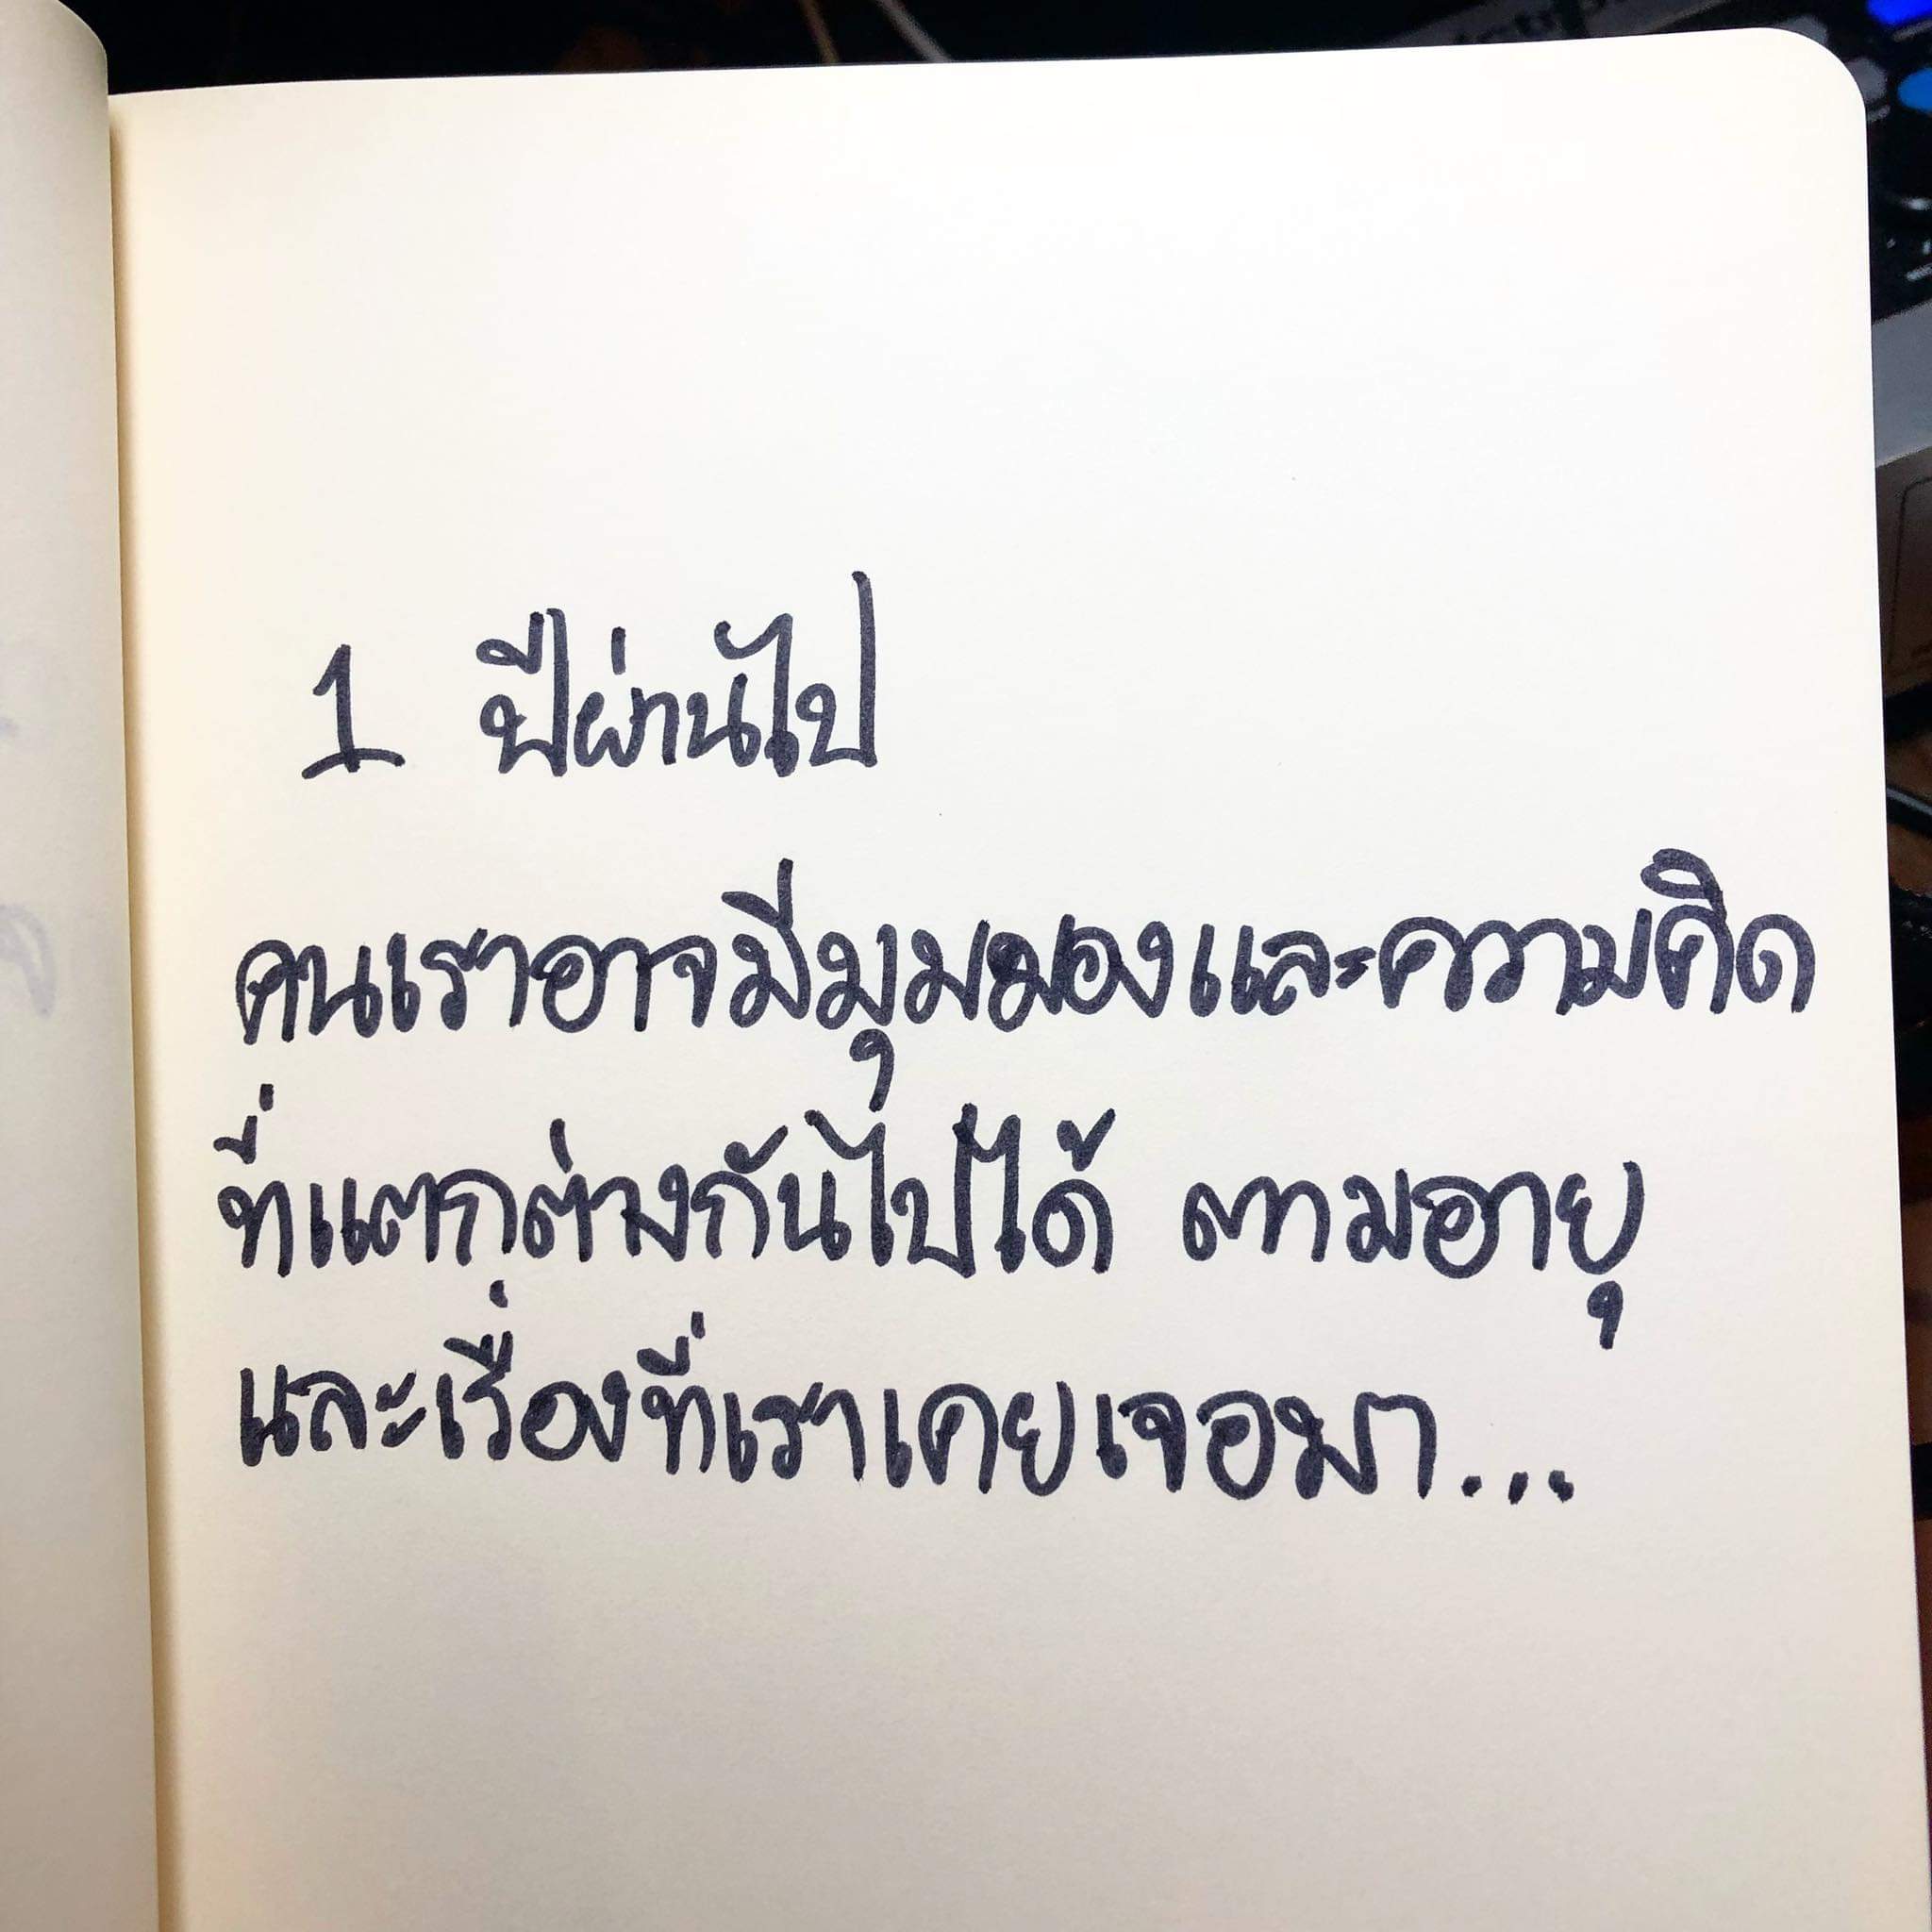 1 ปีผ่านไป
คนเราอาจมีมุมมองและความคิด
ที่แตกต่างกันไปได้ ตามอายุ
และเรื่องที่เราเคยเจอมา...